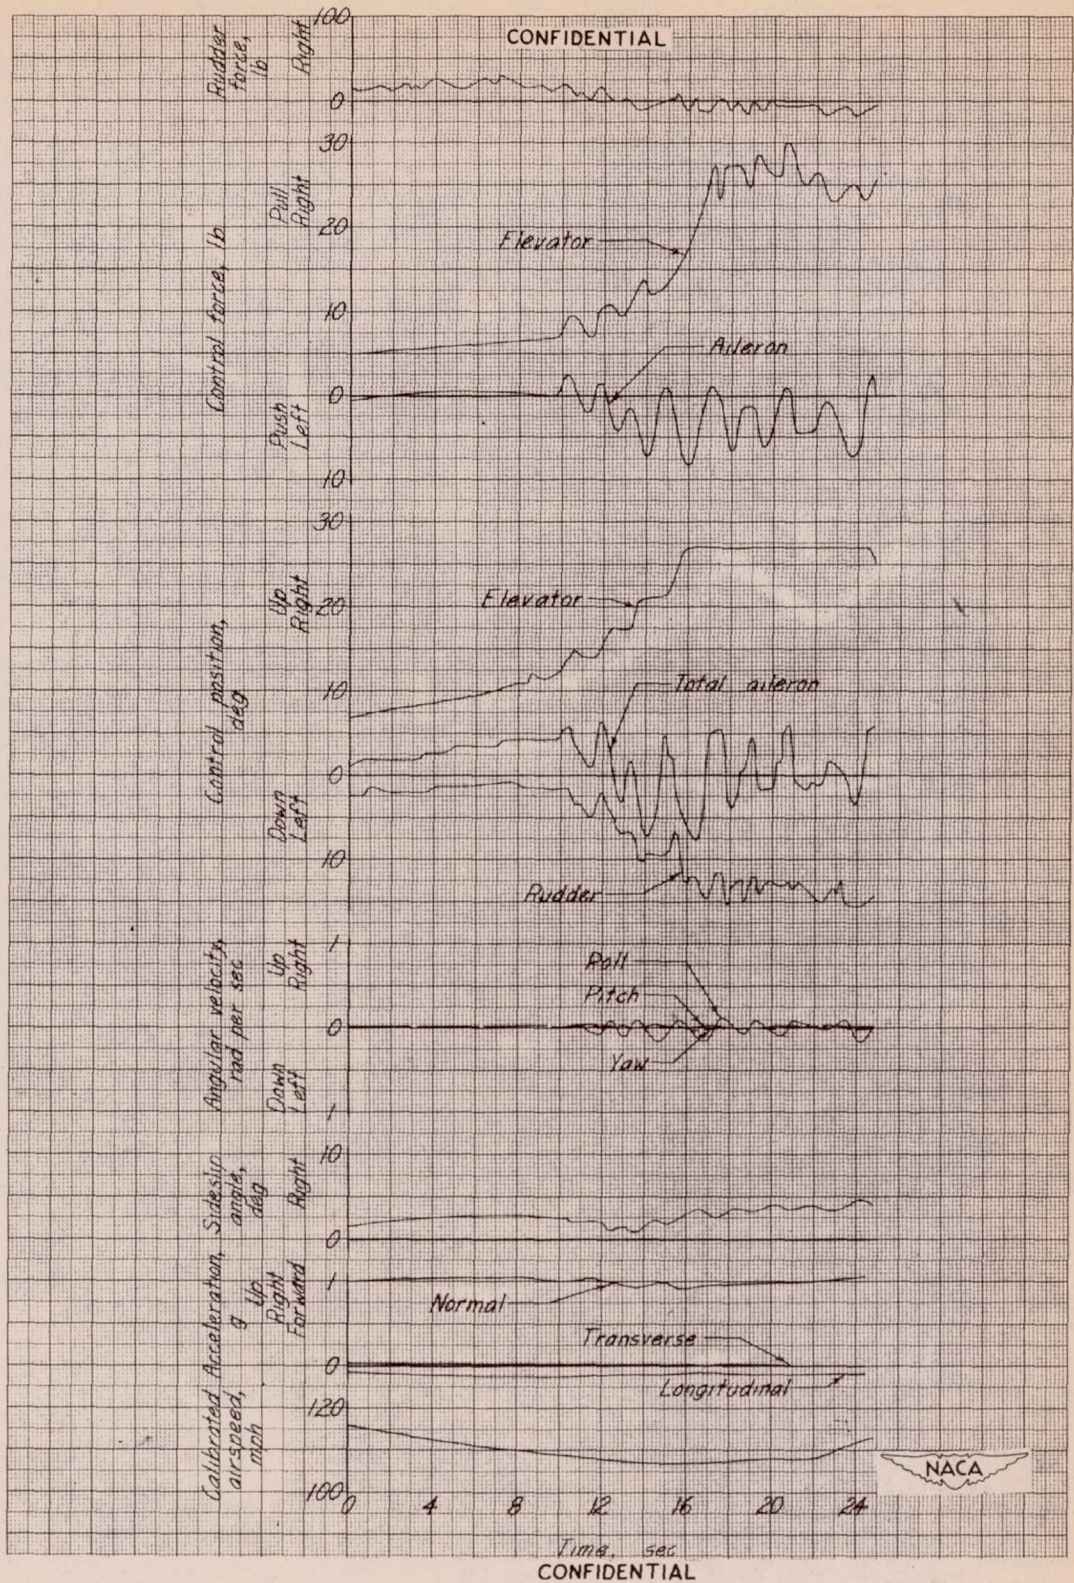 CONFIDENTIAL
Rudder force, lb
Right
100
0
Control force, lb
Pull Right
Push Left
30
20
10
0
10
Elevator
Aileron
Control position, deg
Up Right
Down Left
30
20
10
0
10
Elevator
Total aileron
Rudder
Angular velocity, rad per sec
Up Right
Down Left
1
0
1
Roll
Pitch
Yaw
Sideslip angle, deg
Right
10
0
Acceleration, g
Up Right Forward
1
0
Normal
Transverse
Longitudinal
Calibrated airspeed, mph
120
100
0 4 8 12 16 20 24
Time, sec
NACA
CONFIDENTIAL